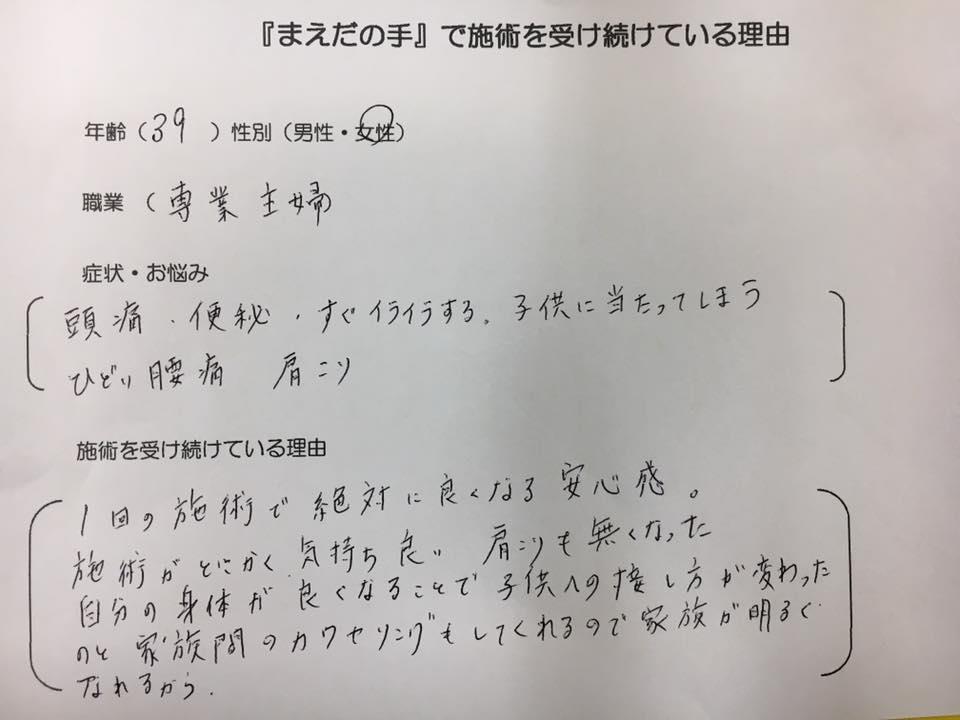 『まえだの手』で施術を受け続けている理由
年齢（39　）性別（男性・女性）
職業（専業主婦
症状・お悩み
頭痛．便秘．すぐイライラする。子供に当たってしまう
ひどい腰痛　肩こり
施術を受け続けている理由
1回の施術で絶対に良くなる安心感。
施術がとにかく気持ち良い　肩こりも無くなった
自分の身体が良くなることで子供への接し方が変わった
のと家族間のカウセリングもしてくれるので家族が明るく
なれるから．